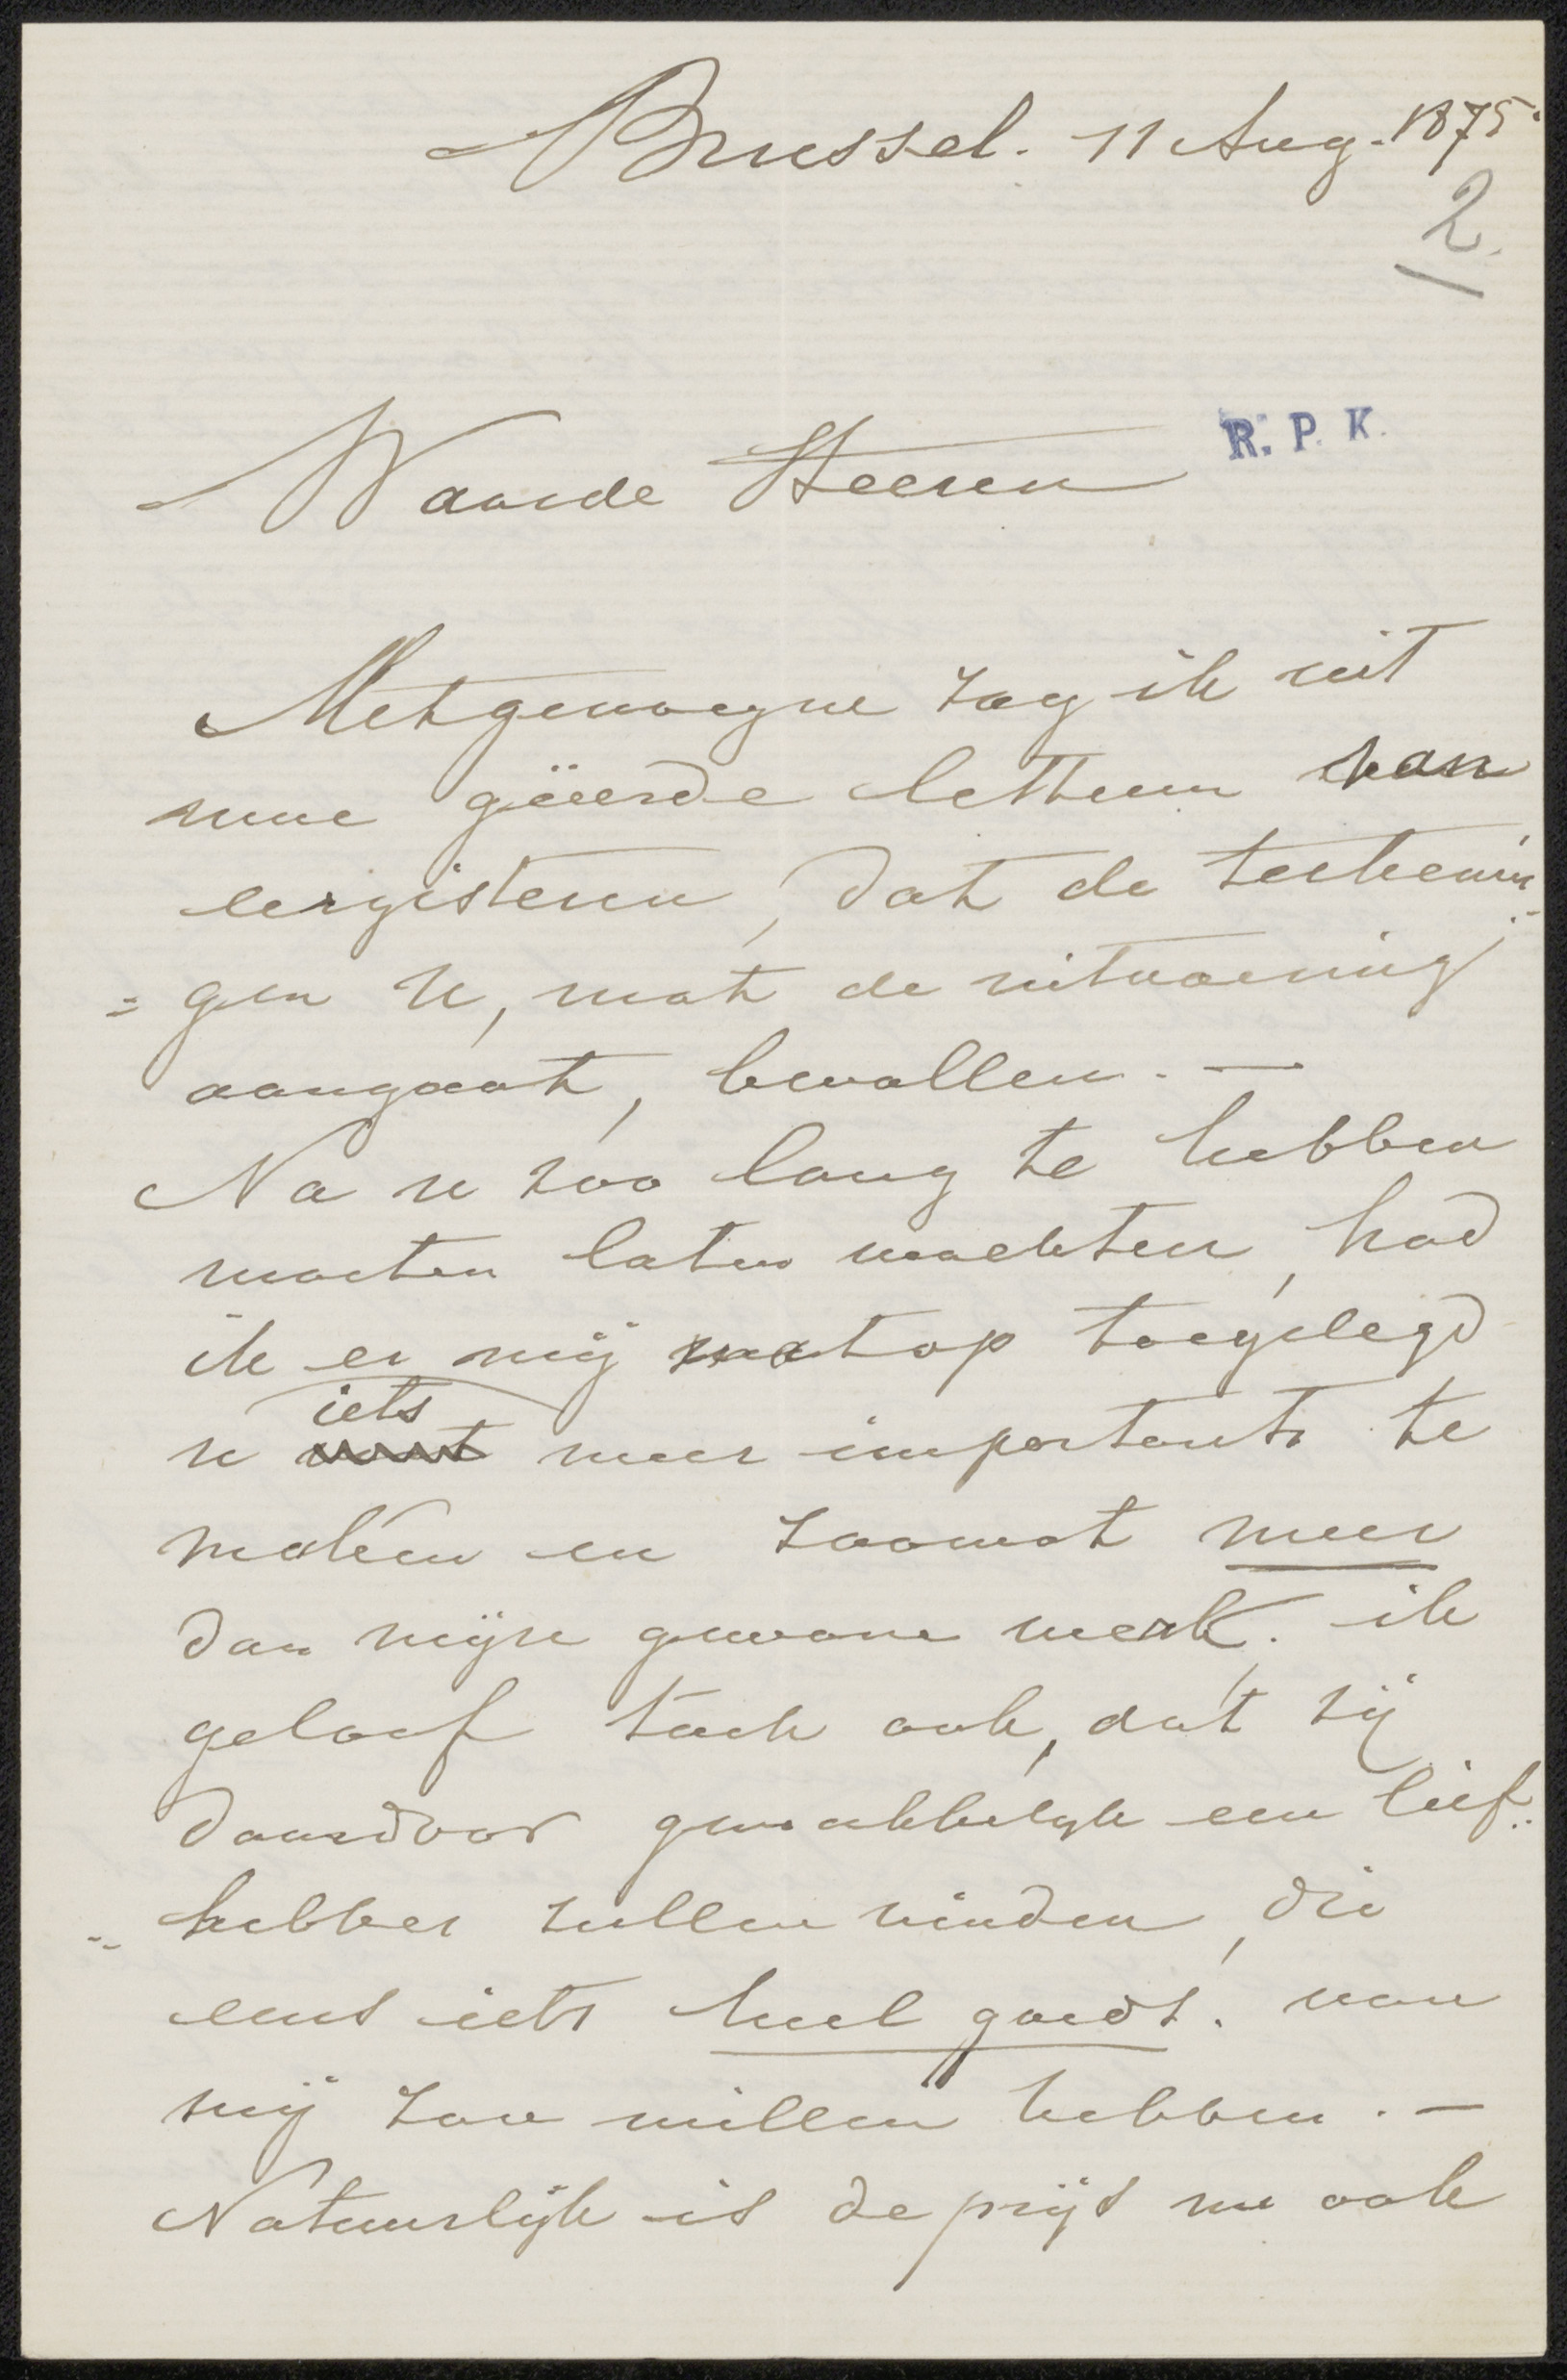 Brussel. 11 Aug. 1875.
2.
R. P. K.
Waarde Heeren
Met genoegne zag ik uit
uwe gëeerde letteren van
eergisteren, dat de teekenin
= gen U, wat de uitvoering
aangaat, bevallen. —
Na u zoo lang te hebben
moeten laten wachten, had
ik er mij op toegelegd
iets
u wat meer importants te
maken en zoowat meer
dan mijn gewone werk. ik
geloof toch ook, dat zij
daardoor gemakkelijk een lief=
= hebber zullen vinden, die
eens iets heel goeds. van
mij zou willen hebben. —
Natuurlijk is de prijs nu ook